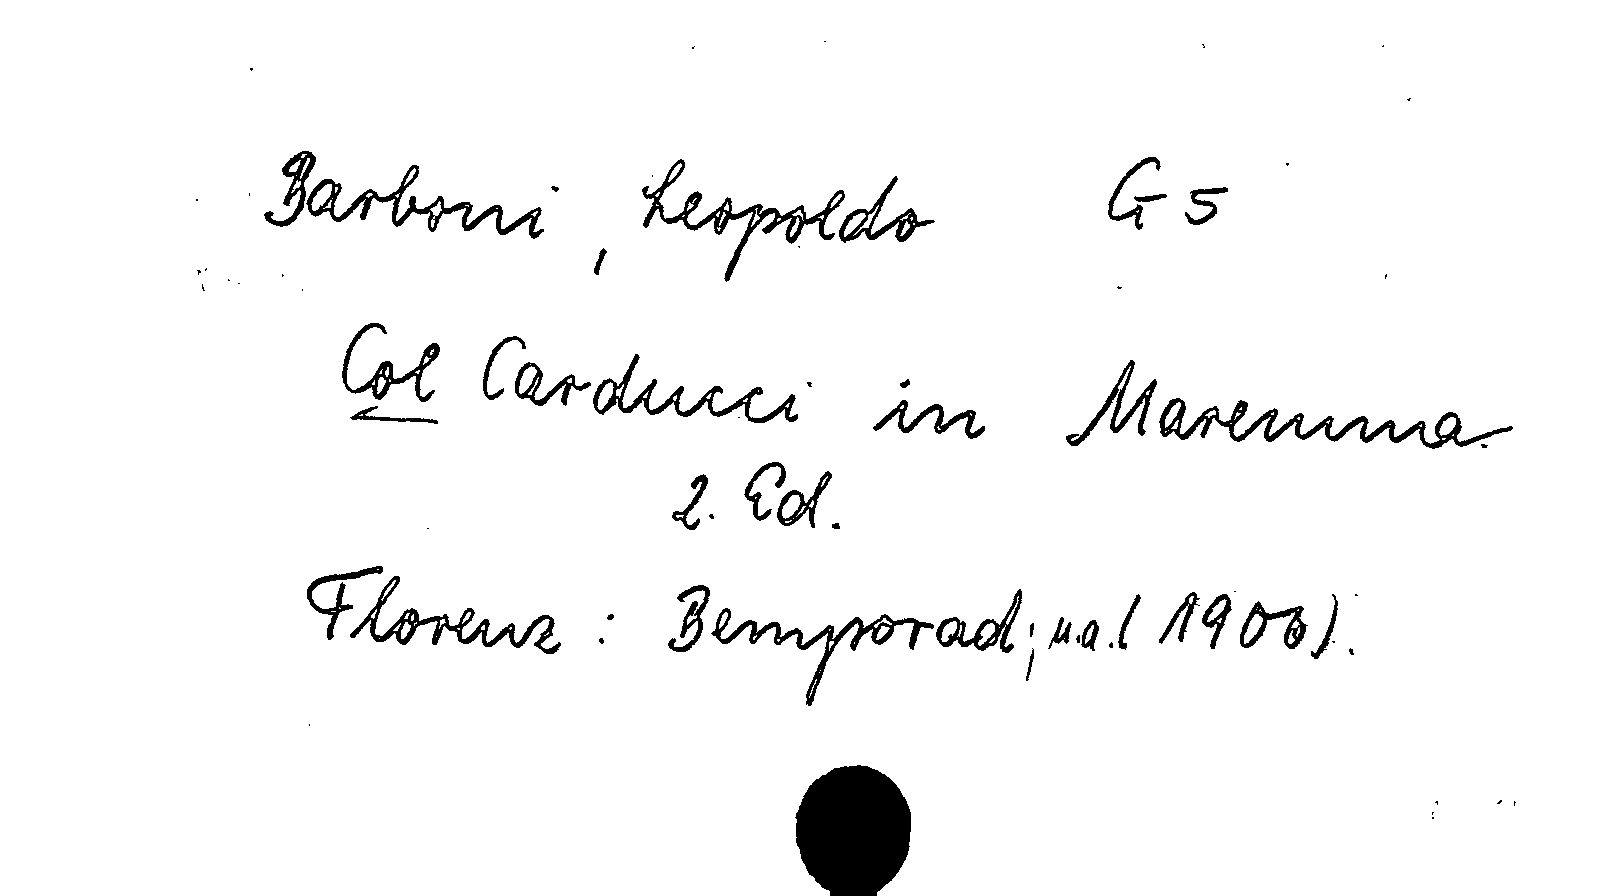 Barboni, Leopoldo G5
Col Carducci in Maremma.
2. Ed.
Florenz: Bemporad; u.a. (1906).